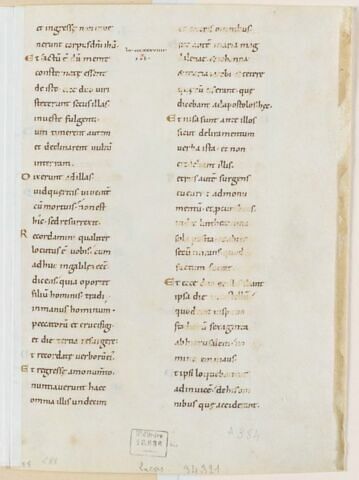 et ingressę non inve
nerunt corpus dni ihu
Et factū ē dū mente
consternatę essent
de isto ecce duo viri
steterunt secus illas
in veste fulgenti
cum timerent autem
et declinarent vultū
in terram
Dixerunt ad illas
quid queritis viventē
cū mortuis non est
hic sed resurrexit
Recordamini qualiter
locutus ē vobis cum
adhuc in galilea eēt
dicens quia oportet
filiū hominis tradi
in manus hominum
peccatorū et crucifigi
et die tertia resurgere
et recordatę verborū ei
Et regressę a monumto
nuntiaverunt haec
omnia illis undecim
et ceteris omnibus
erat autē maria mag
dalenae et iohanna
et maria iacobi et ceterę
quę cū eis erant quę
dicebant ad apostolos hec
Et visa sunt ante illos
sicut deliramentum
verba ista et non
credebant illis
petrus autē surgens
cucurrit ad monu
mentū et procumbens
vidit linteamina
sola posita et abiit
secū mirans quod
factum fuerat
Et ecce duo ex illis ibant
ipsa die in castellum
quod erat in spatio
stadiorū sexaginta
ab hierusalem no
mine emmaus
et ipsi loquebantur
ad invicē de his om
nibus quę acciderant
A 384
Lucas 34321